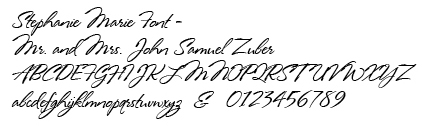 Stephanie Marie Font -
Mr. and Mrs. John Samuel Zuber
ABCDEFGHIJKLMNOPQRSTUVWXYZ
abcdefghijklmnopqrstuvwxyz & 0123456789